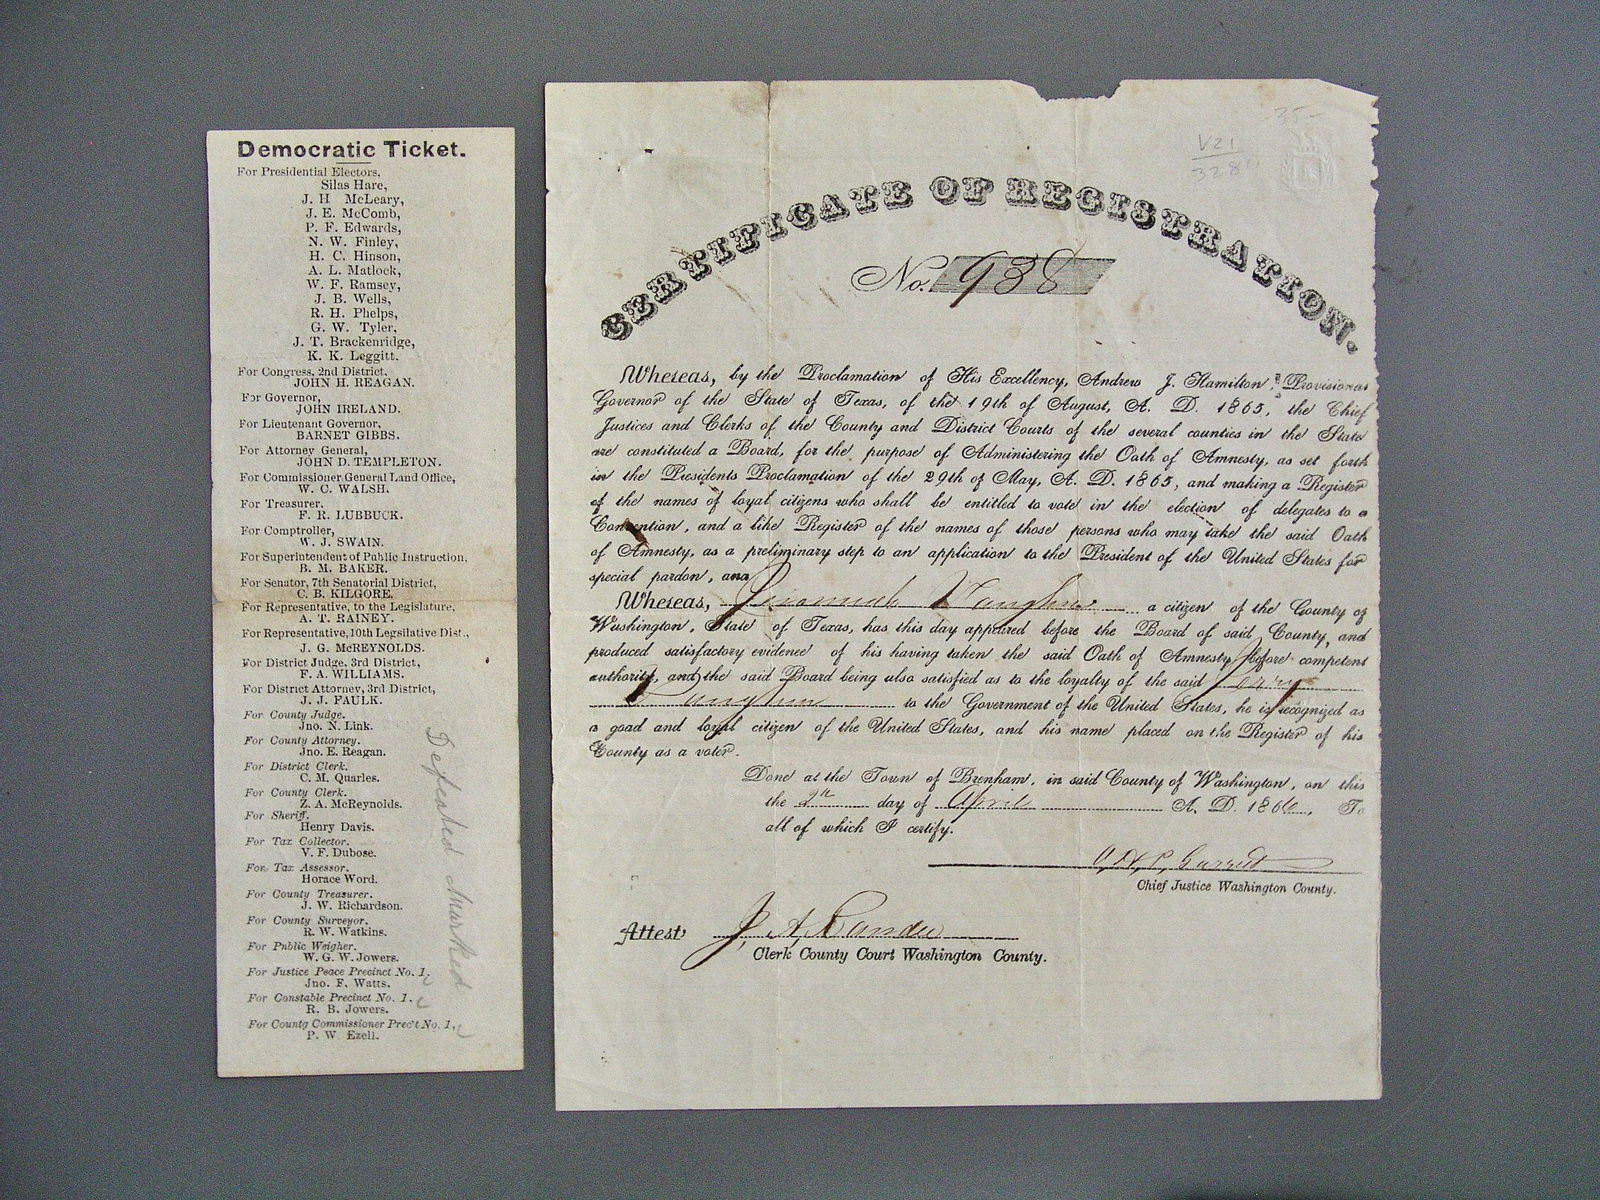 Democratic Ticket.
For Presidential Electors,
Silas Hare,
J. H McLeary,
J. E. McComb,
P. F. Edwards,
N. W. Finley,
H. C. Hinson,
A. L. Matlock,
W. F. Ramsey,
J. B. Wells,
R. H. Phelps,
G. W. Tyler,
J. T. Brackenridge,
K. K. Leggitt.
For Congress, 2nd District,
JOHN H. REAGAN.
For Governor,
JOHN IRELAND.
For Lieutenant Governor,
BARNET GIBBS.
For Attorney General,
JOHN D. TEMPLETON.
For Commissioner General Land Office,
W. C. WALSH.
For Treasurer,
F. R. LUBBUCK.
For Comptroller,
W. J. SWAIN.
For Superintendent of Public Instruction,
B. M. BAKER.
For Senator, 7th Senatorial District,
C. B. KILGORE.
For Representative, to the Legislature,
A. T. RAINEY.
For Representative, 10th Legsilative Dist.,
J. G. McREYNOLDS.
For District Judge, 3rd District,
F. A. WILLIAMS.
For District Attorney, 3rd District,
J. J. FAULK.
For County Judge.
Jno. N. Link.
For County Attorney.
Jno. E. Reagan.
For District Clerk.
C. M. Quarles.
For County Clerk.
Z. A. McReynolds.
For Sheriff.
Henry Davis.
For Tax Collector.
V. F. Dubose.
For Tax Assessor.
Horace Word.
For County Treasurer.
J. W. Richardson.
For County Surveyor.
R. W. Watkins.
For Public Weigher.
W. G. W. Jowers.
For Justice Peace Precinct No. 1.
Jno. F. Watts.
For Constable Precinct No. 1.
R. B. Jowers.
For County Commissioner Prec't No. 1,
P. W Ezell.
Defeated Marked
35-
V21
328
CERTIFICATE OF REGISTRATION.
No. 938
Whereas, by the Proclamation of His Excellency, Andrew J. Hamilton, Provisional
Governor of the State of Texas, of the 19th of August, A. D. 1865, the Chief
Justices and Clerks of the County and District Courts of the several counties in the State
are constituted a Board, for the purpose of Administering the Oath of Amnesty, as set forth
in the Presidents Proclamation of the 29th of May, A. D. 1865, and making a Register
of the names of loyal citizens who shall be entitled to vote in the election of delegates to a
Convention, and a like Register of the names of those persons who may take the said Oath
of Amnesty, as a preliminary step to an application to the President of the United States for
special pardon, and
Whereas, Jeremiah Vaughn a citizen of the County of
Washington, State of Texas, has this day appeared before the Board of said County, and
produced satisfactory evidence of his having taken the said Oath of Amnesty before competent
authority, and the said Board being also satisfied as to the loyalty of the said Jerry
Vaughn to the Government of the United States, he is recognized as
a good and loyal citizen of the United States, and his name placed on the Register of his
County as a voter.
Done at the Town of Brenham, in said County of Washington, on this
the 2nd day of April A. D. 1866, To
all of which I certify.
O. H. P. Garrett
Chief Justice Washington County.
Attest J. A.
Clerk County Court Washington County.